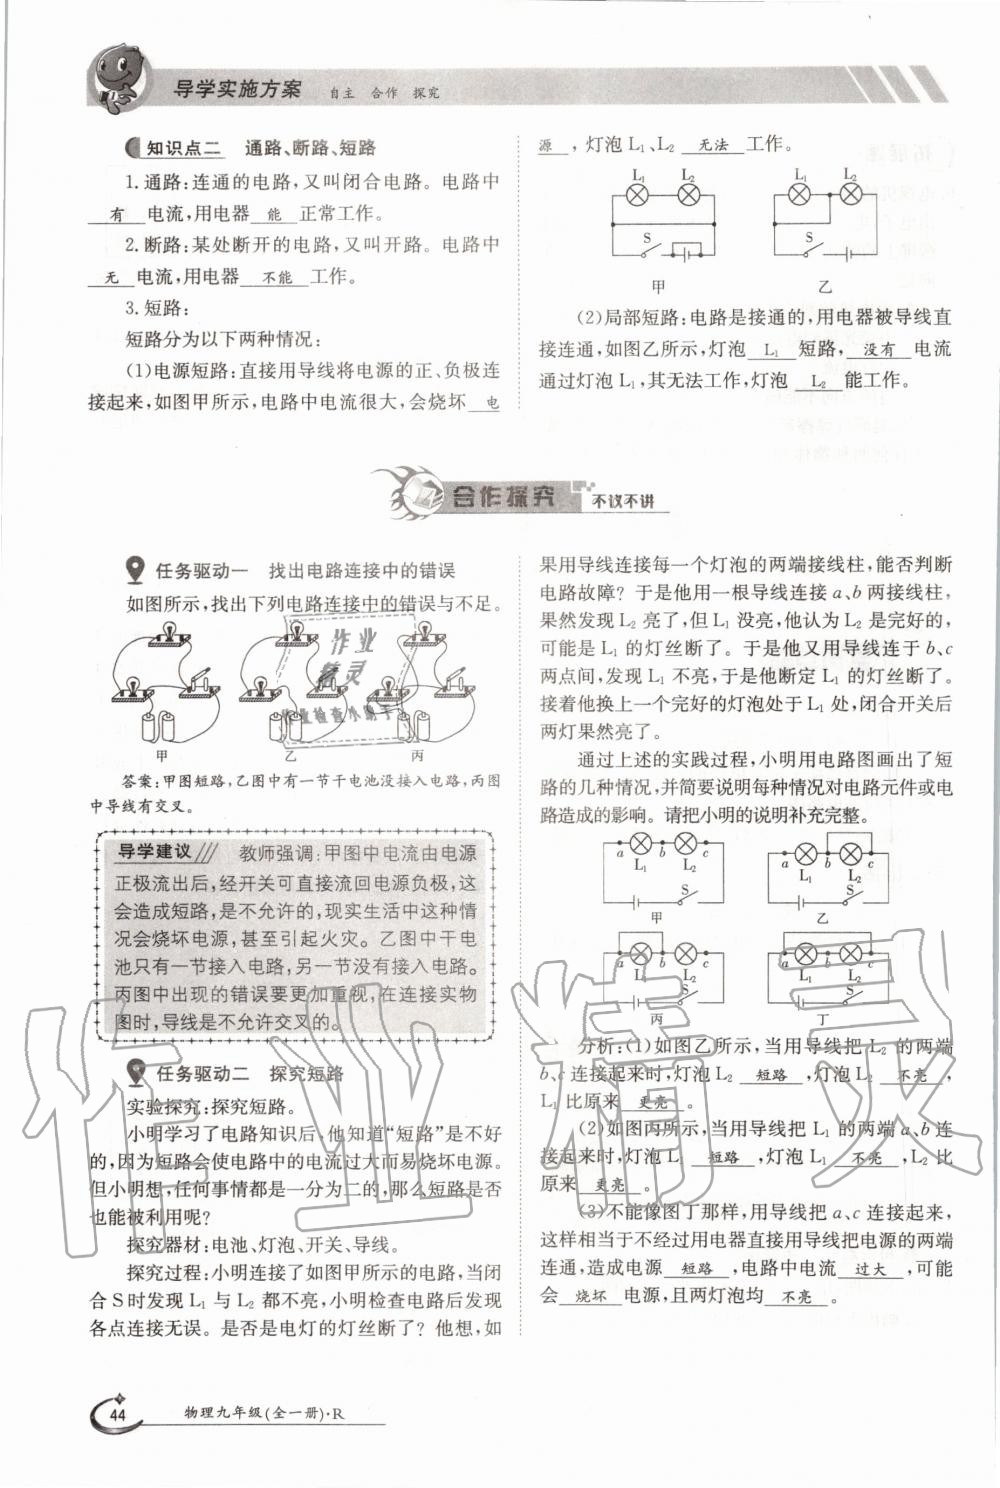 导学实施方案 自主 合作 探究
知识点二 通路、断路、短路
1.通路:连通的电路,又叫闭合电路。电路中
有 电流,用电器 能 正常工作。
2.断路:某处断开的电路,又叫开路。电路中
无 电流,用电器 不能 工作。
3.短路:
短路分为以下两种情况:
(1)电源短路:直接用导线将电源的正、负极连
接起来,如图甲所示,电路中电流很大,会烧坏 电
源 ,灯泡 L₁、L₂ 无法 工作。
L₁ L₂ S 甲
L₁ L₂ S 乙
(2)局部短路:电路是接通的,用电器被导线直
接连通,如图乙所示,灯泡 L₁ 短路, 没有 电流
通过灯泡 L₁,其无法工作,灯泡 L₂ 能工作。
合作探究 不议不讲
任务驱动一 找出电路连接中的错误
如图所示,找出下列电路连接中的错误与不足。
甲 乙 丙
答案:甲图短路,乙图中有一节干电池没接入电路,丙图
中导线有交叉。
导学建议 教师强调:甲图中电流由电源
正极流出后,经开关可直接流回电源负极,这
会造成短路,是不允许的,现实生活中这种情
况会烧坏电源,甚至引起火灾。乙图中干电
池只有一节接入电路,另一节没有接入电路。
丙图中出现的错误要更加重视,在连接实物
图时,导线是不允许交叉的。
任务驱动二 探究短路
实验探究:探究短路。
小明学习了电路知识后,他知道“短路”是不好
的,因为短路会使电路中的电流过大而易烧坏电源。
但小明想,任何事情都是一分为二的,那么短路是否
也能被利用呢?
探究器材:电池、灯泡、开关、导线。
探究过程:小明连接了如图甲所示的电路,当闭
合 S 时发现 L₁ 与 L₂ 都不亮,小明检查电路后发现
各点连接无误。是否是电灯的灯丝断了?他想,如
果用导线连接每一个灯泡的两端接线柱,能否判断
电路故障?于是他用一根导线连接 a、b 两接线柱,
果然发现 L₂ 亮了,但 L₁ 没亮,他认为 L₂ 是完好的,
可能是 L₁ 的灯丝断了。于是他又用导线连于 b、c
两点间,发现 L₁ 不亮,于是他断定 L₁ 的灯丝断了。
接着他换上一个完好的灯泡处于 L₁ 处,闭合开关后
两灯果然亮了。
通过上述的实践过程,小明用电路图画出了短
路的几种情况,并简要说明每种情况对电路元件或电
路造成的影响。请把小明的说明补充完整。
a b c L₁ L₂ S 甲
a b c L₁ L₂ S 乙
a b c L₁ L₂ S 丙
a b c L₁ L₂ S 丁
分析:(1)如图乙所示,当用导线把 L₂ 的两端
b、c 连接起来时,灯泡 L₂ 短路 ,灯泡 L₂ 不亮 ,
L₁ 比原来 更亮 。
(2)如图丙所示,当用导线把 L₁ 的两端 a、b 连
接起来时,灯泡 L₁ 短路 ,灯泡 L₁ 不亮 ,L₂ 比
原来 更亮 。
(3)不能像图丁那样,用导线把 a、c 连接起来,
这样相当于不经过用电器直接用导线把电源的两端
连通,造成电源 短路 ,电路中电流 过大 ,可能
会 烧坏 电源,且两灯泡均 不亮 。
44 物理九年级(全一册)·R
作业精灵
作业
精灵
作业检查小助手